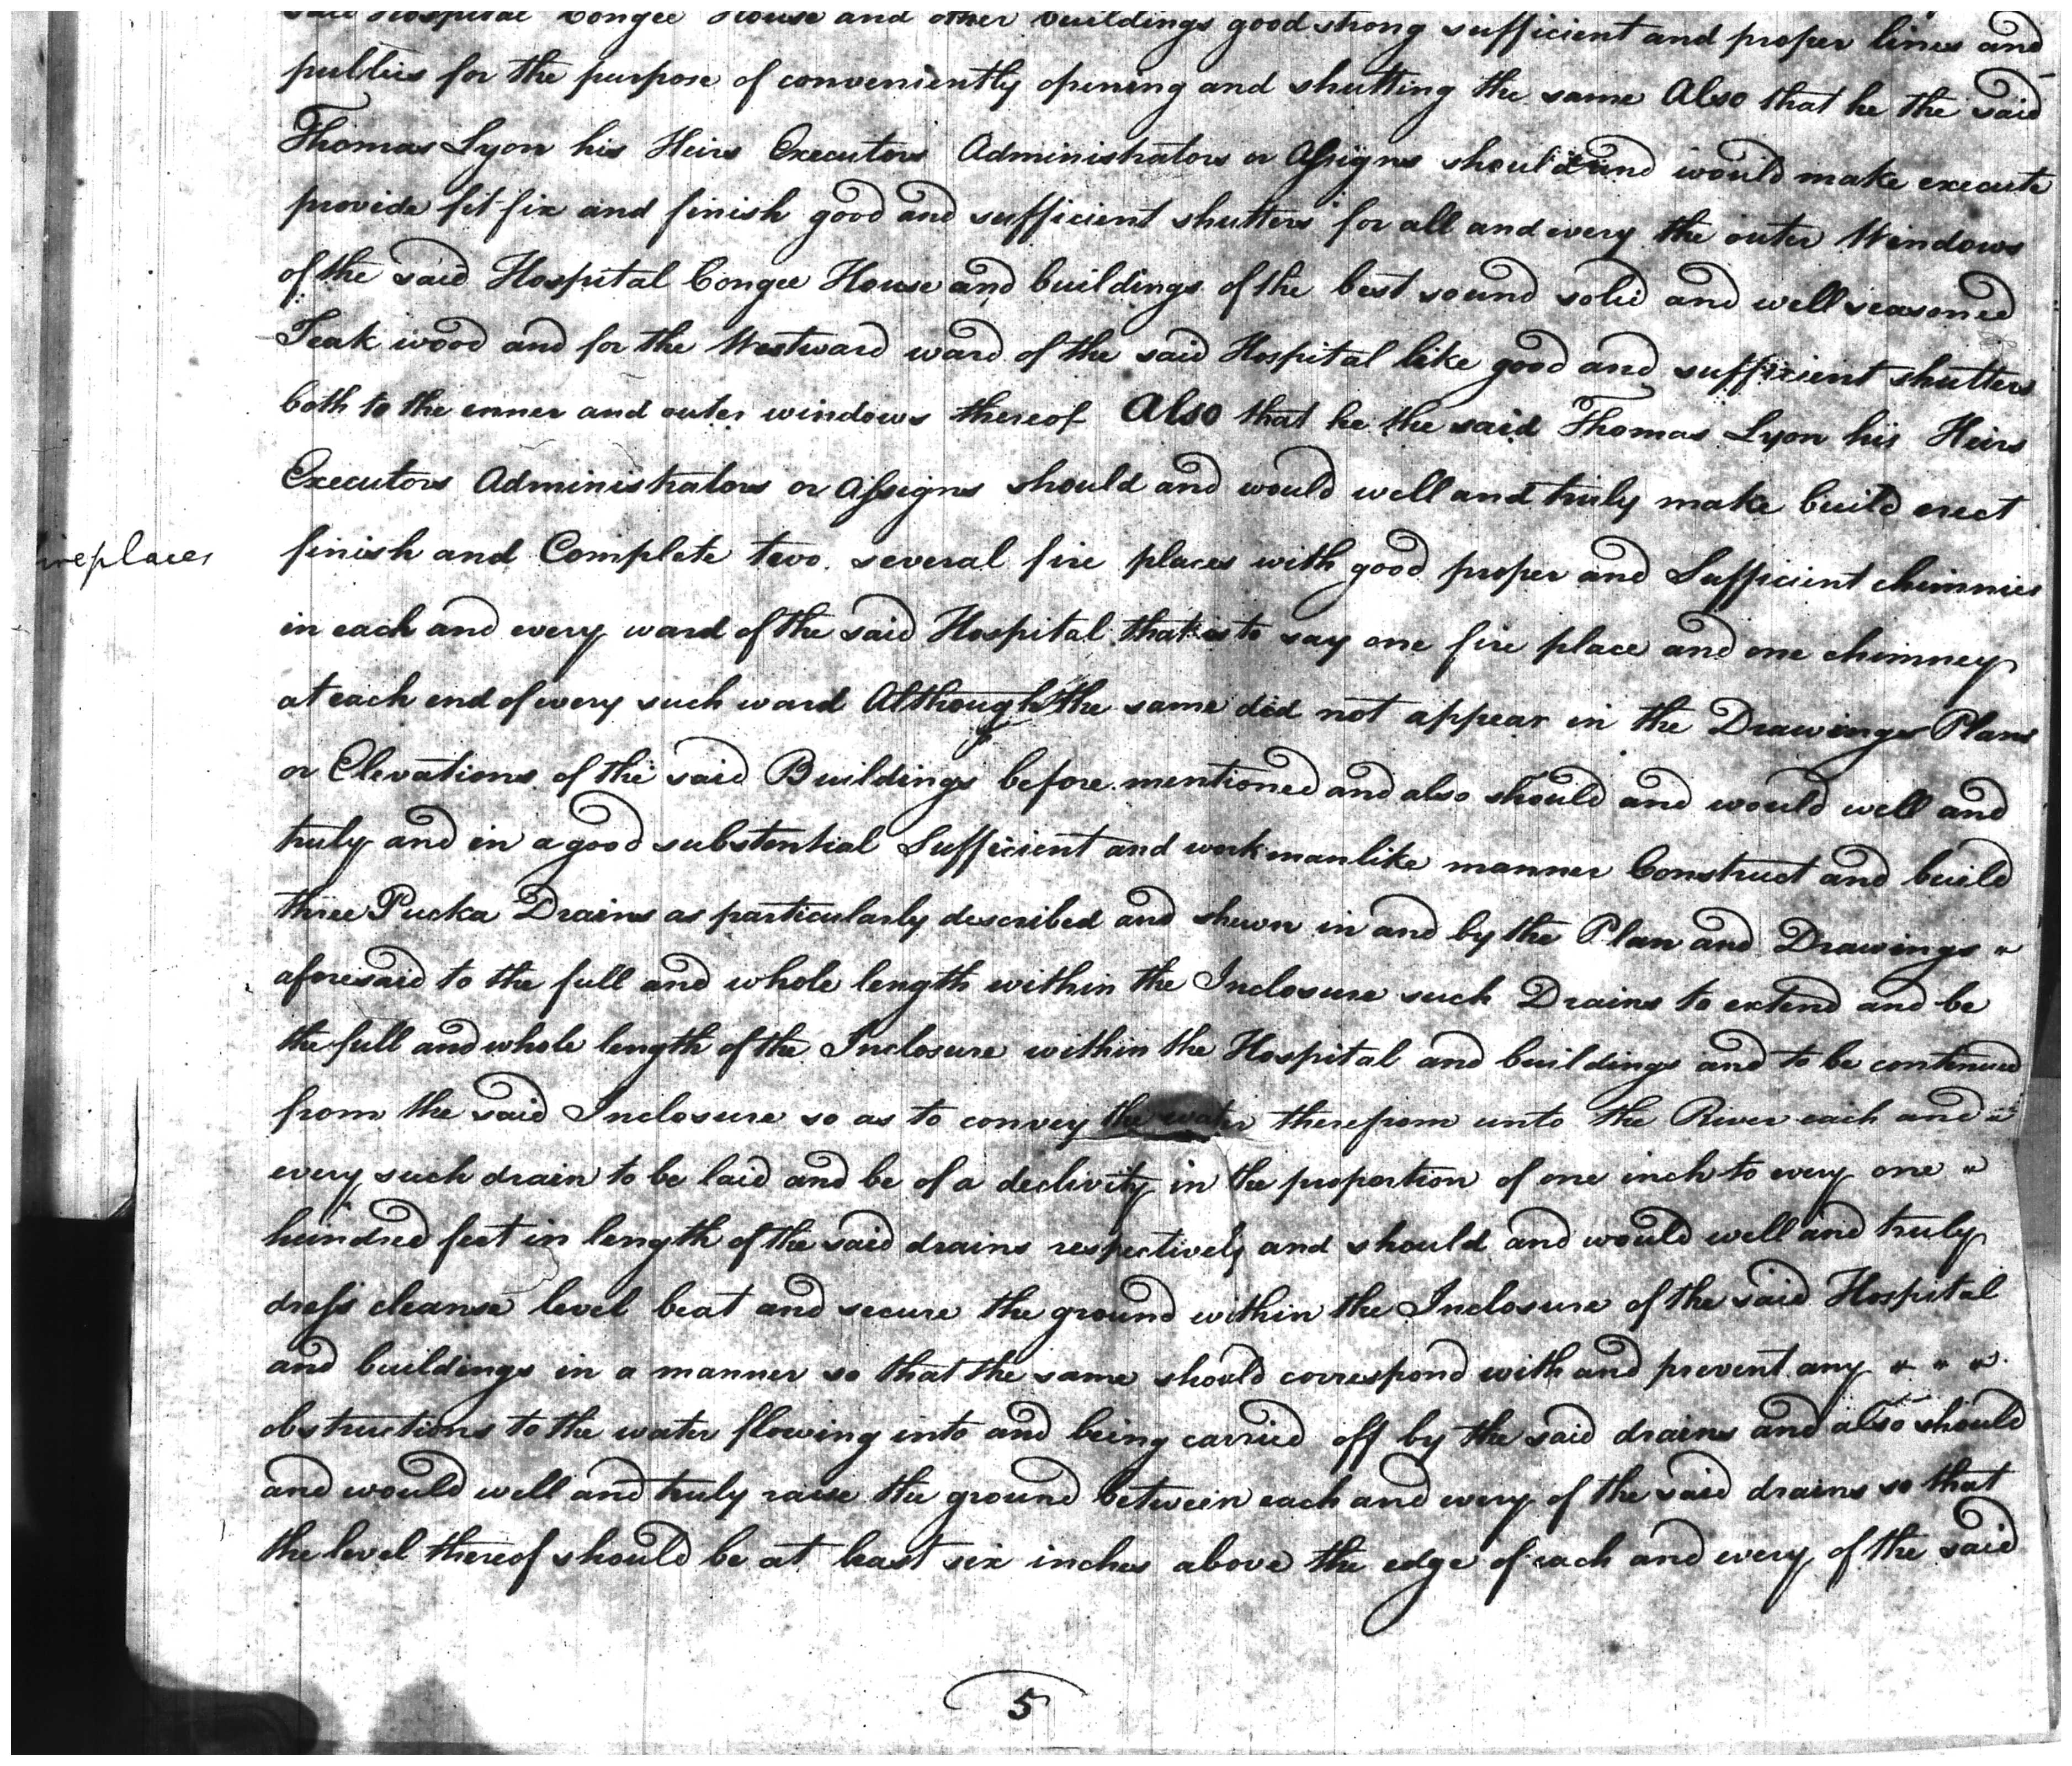 said Hospital Congee House and other buildings good strong sufficient and proper lines and
pullies for the purpose of conveniently opening and shutting the same Also that he the said
Thomas Lyon his Heirs Executors Administrators or Assigns should and would make execute
provide fit fix and finish good and sufficient shutters for all and every the outer Windows
of the said Hospital Congee House and buildings of the best sound solid and well seasoned
Teak wood and for the Westward ward of the said Hospital like good and sufficient shutters
both to the inner and outer windows thereof Also that he the said Thomas Lyon his Heirs
Executors Administrators or Assigns should and would well and truly make build erect
fireplaces
finish and Complete two several fire places with good proper and Sufficient chimnies
in each and every ward of the said Hospital that is to say one fire place and one chimney
at each end of every such ward Although the same did not appear in the Drawings Plans
or Elevations of the said Buildings before mentioned and also should and would well and
truly and in a good substential Sufficient and workmanlike manner Construct and build
three Pucka Drains as particularly described and shewn in and by the Plan and Drawings "
aforesaid to the full and whole length within the Inclosure such Drains to extend and be
the full and whole length of the Inclosure within the Hospital and buildings and to be continued
from the said Inclosure so as to convey the water therefrom unto the River each and "
every such drain to be laid and be of a declivity in the proportion of one inch to every one "
hundred feet in length of the said drains respectively and should and would well and truly
dress cleanse level beat and secure the ground within the Inclosure of the said Hospital
and buildings in a manner so that the same should correspond with and prevent any " " "
obstructions to the water flowing into and being carried off by the said drains and also should
and would well and truly raise the ground between each and every of the said drains so that
the level thereof should be at least six inches above the edge of each and every of the said
5